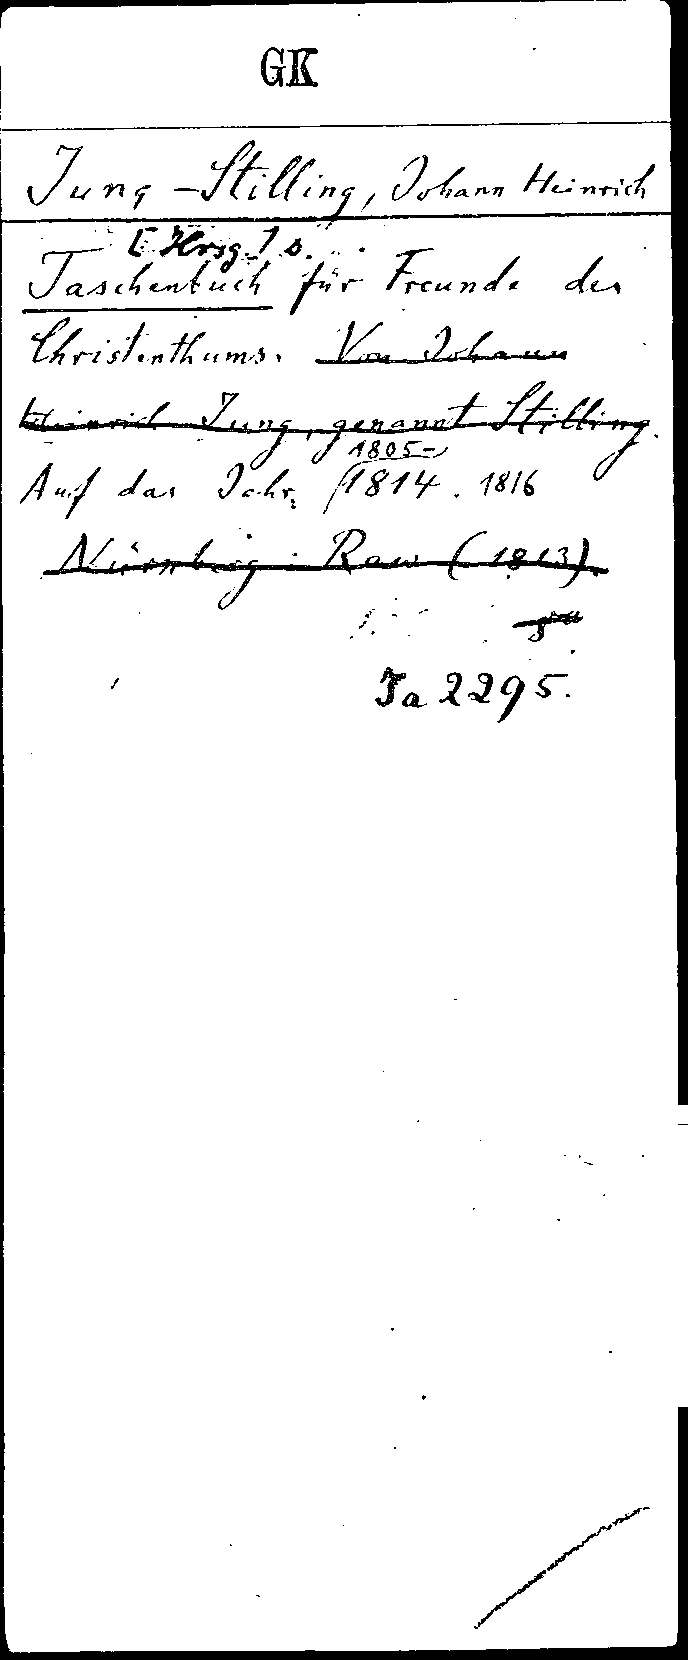 GK
Jung-Stilling, Johann Heinrich
[Hrsg.] s.
Taschenbuch für Freunde des
Christenthums. Von Johann
Heinrich Jung, genannt Stilling.
1805-
Auf das Jahr 1814. 1816
Nürnberg: Raw (1813).
Ja 2295.